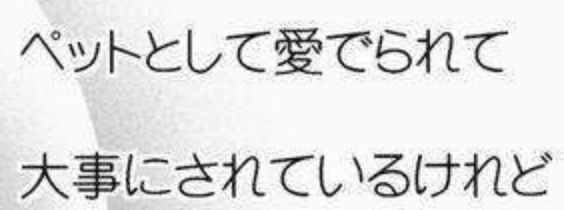 ペットとして愛でられて
大事にされているけれど